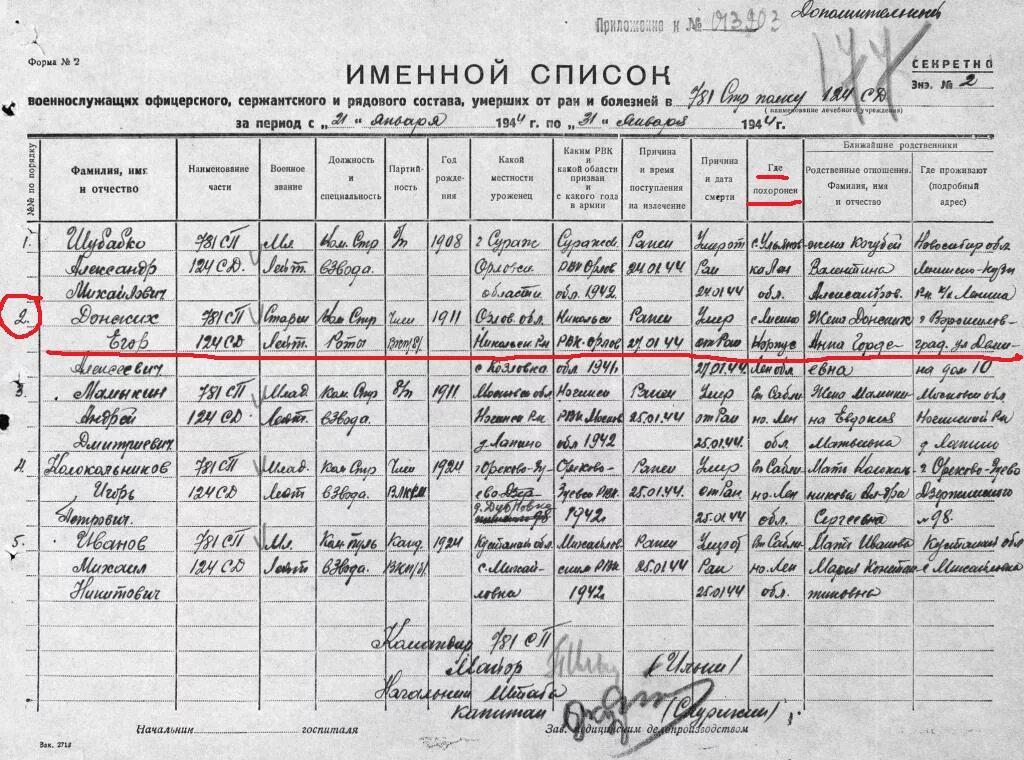 Дополнительный
Приложение и № 013903
177
Форма № 2
СЕКРЕТНО
Экз. № 2
ИМЕННОЙ СПИСОК
военнослужащих офицерского, сержантского и рядового состава, умерших от ран и болезней в 781 Стр полку 124 СД
( наименование лечебного учреждения)
за период с „21" января 1944 г. по „31" января 1944 г.
№№ по порядку
Фамилия, имя и отчество
Наименование части
Военное звание
Должность и специальность
Партийность
Год рождения
Какой местности уроженец
Каким РВК и какой области призван и с какого года в армии
Причина и время поступления на излечение
Причина и дата смерти
Где похоронен
Ближайшие родственники
Родственные отношения. Фамилия, имя и отчество
Где проживают (подробный адрес)
1. Шубабко 781 СП Мл Ком. Стр б/п 1908 г Сураж Суражс. Ранен Умер от с. Ульянов жена Кочубей Новосибир обл.
Александр 124 СД. Лейт. взвода. Орловск РВК Орлов 24.01.44 Ран ка Лен Валентина
Михайлович области обл. 1942. 24.01.44 обл. Александров.
2. Донских 781 СП Старш Ком Стр Член 1911 Орлов. обл. Никольск Ранен Умер с. Лисино Жена Донских г Ворошилов-
Егор 124 СД Лейт. Роты ВКП/б/ Никольск Рн РВК Орлов 27.01.44 от Ран Корпус Анна Гордеград. ул Дачи-
Алексеевич с Козловка обл 1941. 27.01.44 Лен обл евна на дом 10
3. Мамыкин 781 СП Млад Ком. Стр б/п 1911 Московск обл Ногинск Ранен Умер ст Сабли Жена Мамыки- Московск обл
Андрей 124 СД Лейт. взвода. Ногинск Рн РВК Моск 25.01.44 от Ран но. Лен на Евдокия Ногинской Рн
Дмитриевич д Лапино обл 1942 25.01.44 обл Матвеевна д Лапино
4. Колокольников 781 СП Млад. Ком Стр Член 1924 г Орехово-Зу- Орехово- Ранен Умер ст Сабли Мать Колоколь- г Орехово-Зуево
Игорь 124 СД Лейт взвода. ВЛКСМ ево Зуево РВК 25.01.44. от Ран но. Лен никова Ал-дра Дзержинского
Петрович. 1942 25.01.44 обл. Сергеевна № 98.
5. Иванов 781 СП Мл. Ком пуль Канд. 1924 Кустанай обл. Михайлов- Ранен Умер от ст Сабли- Мать Иванова Кустанай обл
Михаил 124 СД Лейт взвода. ВКП/б/ с. Михай- ский РВК 25.01.44 Ран но. Лен Мария Констан- с Михайловка
Никитович ловка 1942 25.01.44 обл. тиновна
Командир 781 СП
Майор (Ильин)
Начальник Штаба
капитан
Начальник госпиталя
Зав. медицинским делопроизводством
Зак. 2718